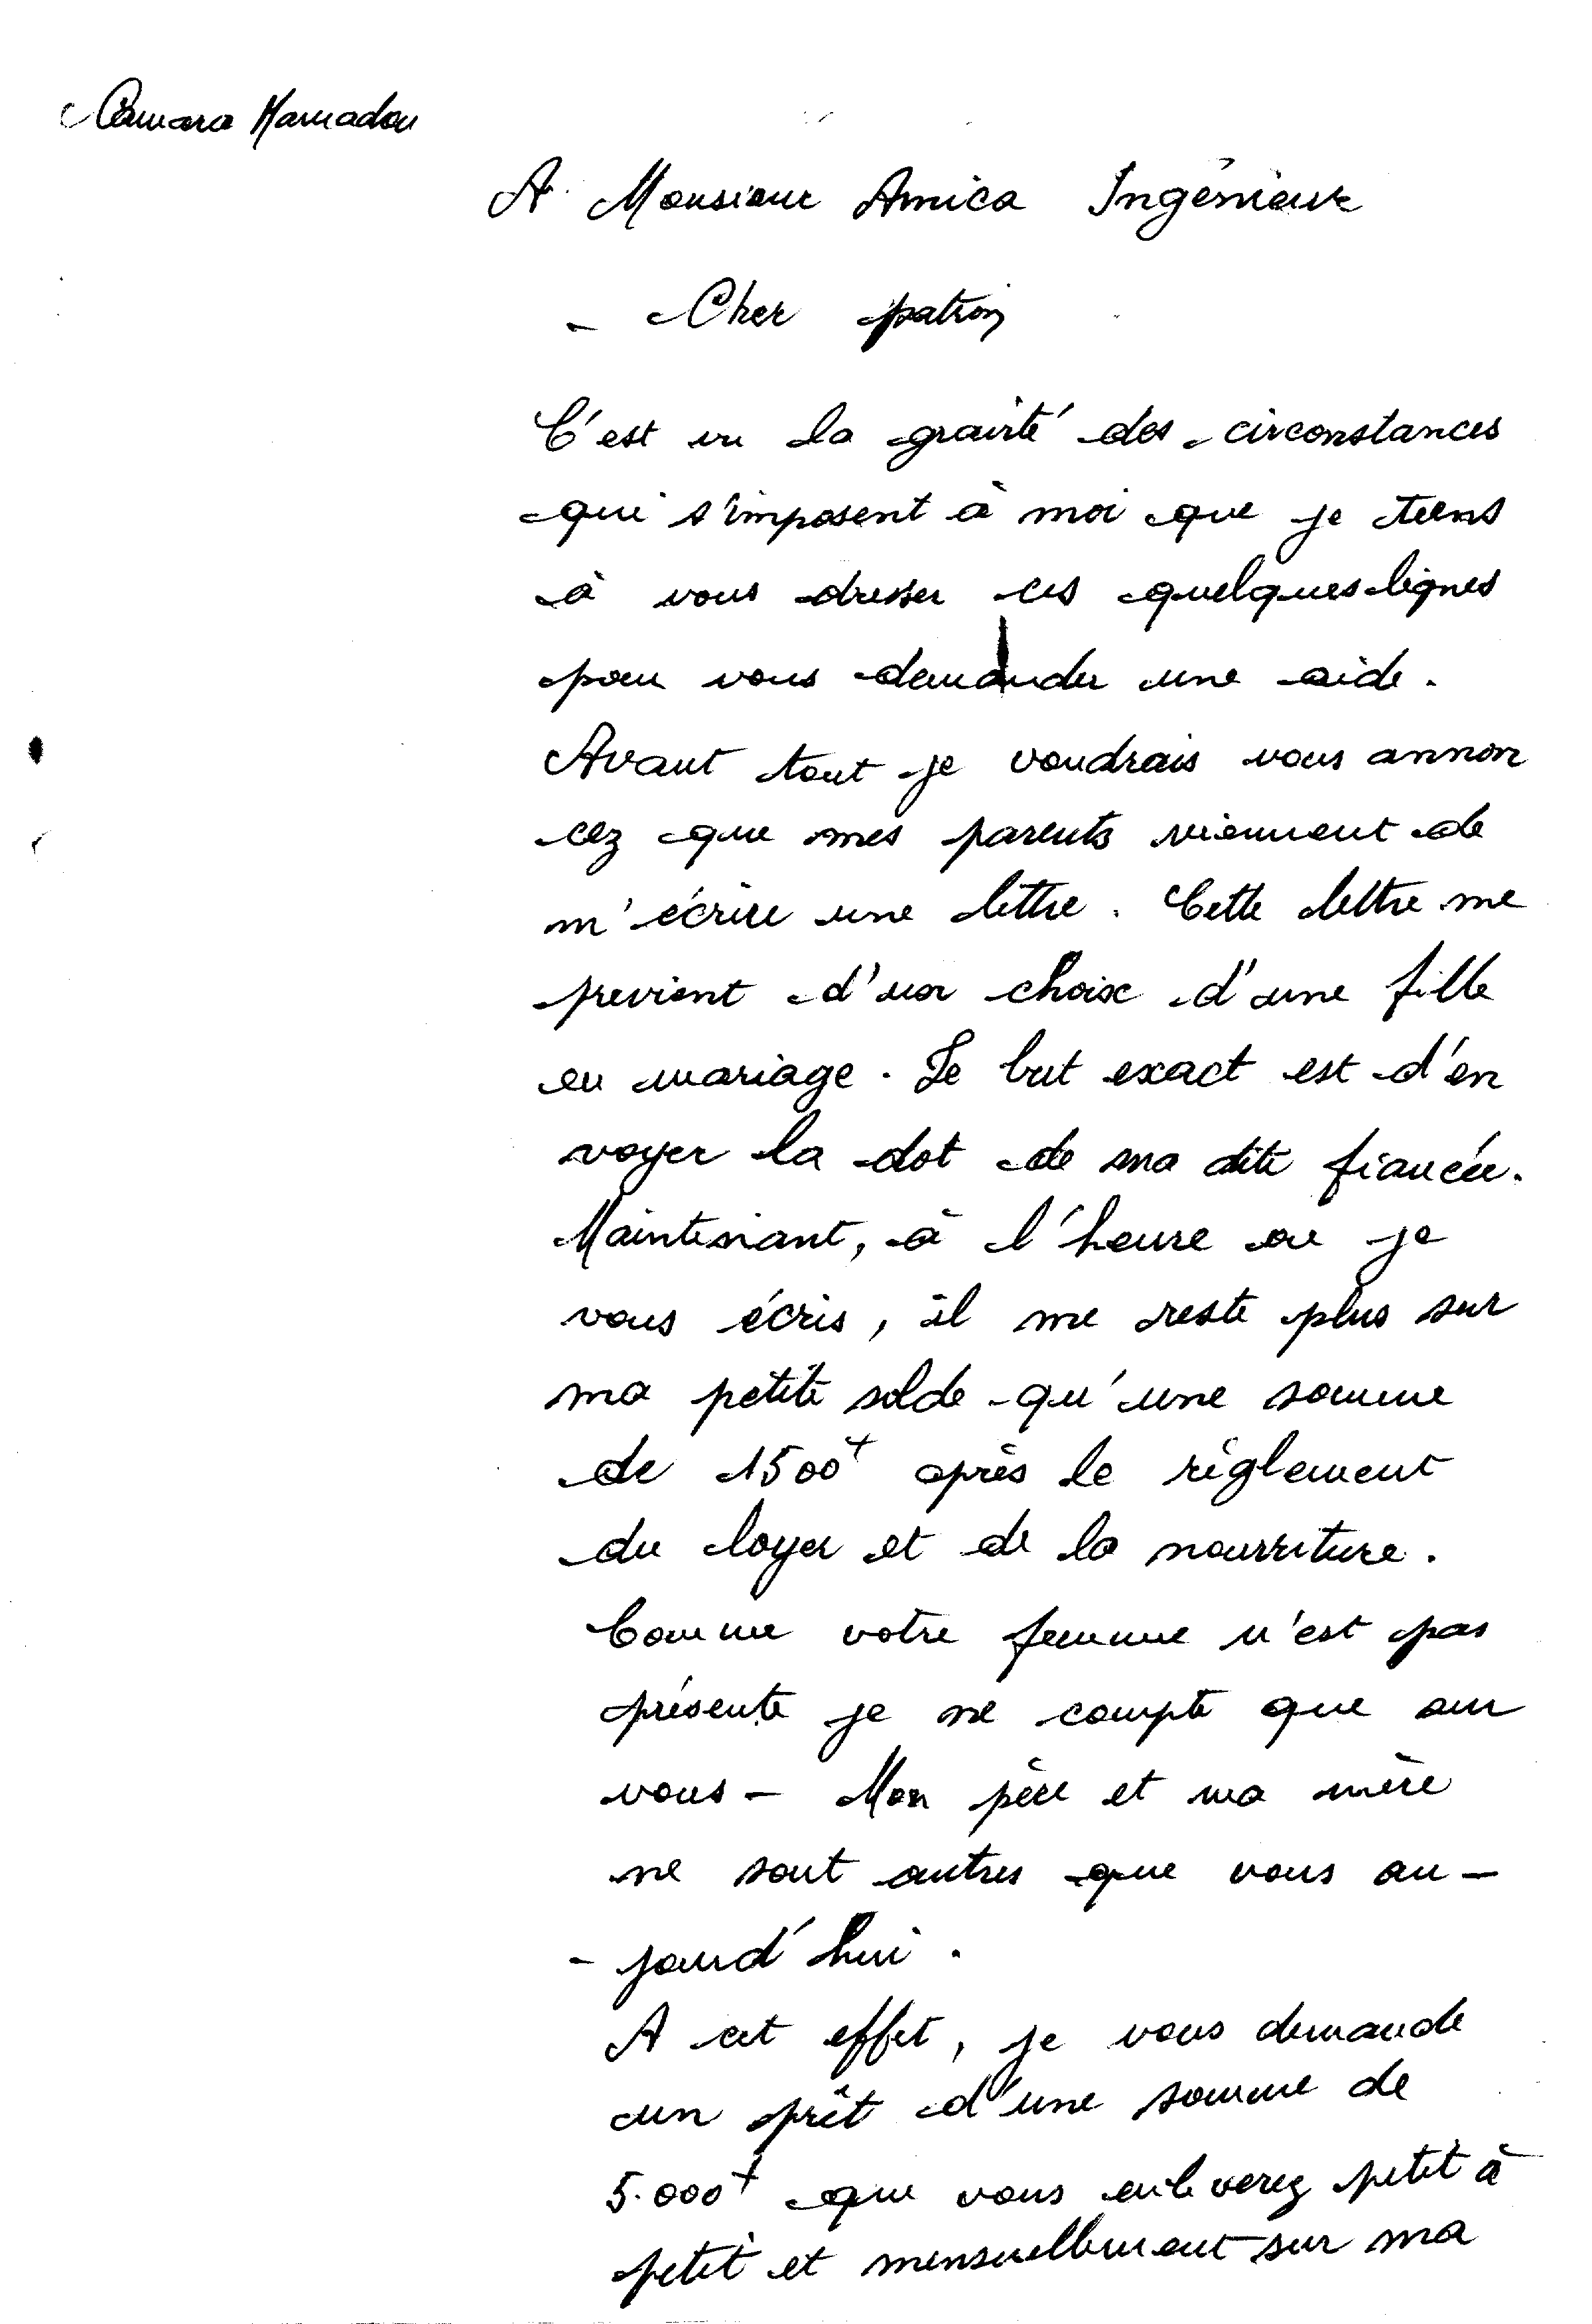 Camara Mamadou
A Monsieur Amica Ingénieur
- Cher patron
C'est vu la gravité des circonstances
qui s'imposent à moi que je tiens
à vous dresser ces quelques lignes
pour vous demander une aide.
Avant tout je voudrais vous annon
cez que mes parents viennent de
m'écrire une lettre. Cette lettre me
previent d'un choix d'une fille
en mariage. Le but exact est d'en
voyer la dot de ma dite fiancée.
Maintenant, à l'heure ou je
vous écris, il me reste plus sur
ma petite solde qu'une somme
de 1500f après le règlement
du loyer et de la nourriture.
Comme votre femme n'est pas
présente je ne compte que sur
vous - Mon père et ma mère
ne sont autres que vous au-
- jourd'hui.
A cet effet, je vous demande
un prêt d'une somme de
5.000f que vous enleverez petit à
petit et mensuellement sur ma